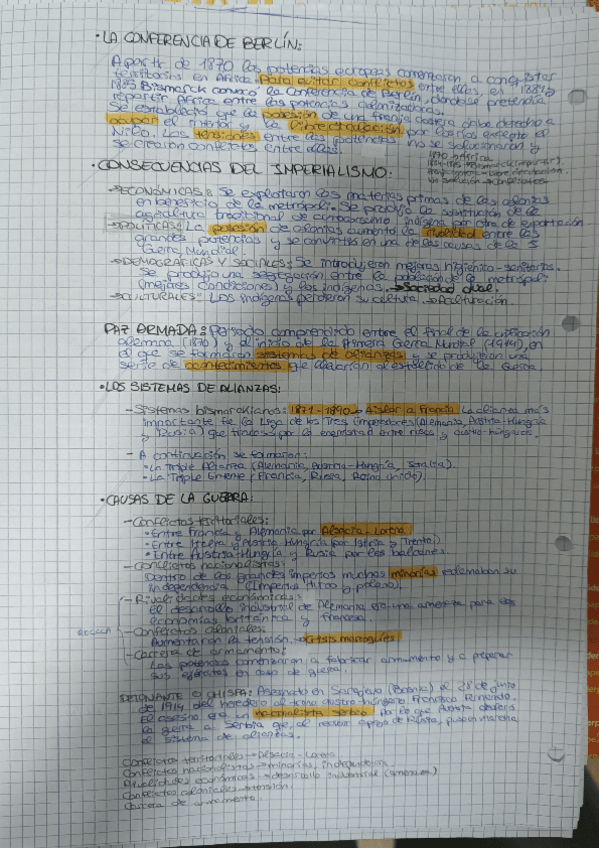 · LA CONFERENCIA DE BERLÍN:
A partir de 1870 las potencias europeas comenzaron a conquistar
territorios en África. Para evitar conflictos entre ellas, en 1884 y
1885 Bismarck convocó la Conferencia de Berlín, donde se pretendía
repartir África entre las potencias colonizadoras.
Se estableció que la posesión de una franja costera daba derecho a
ocupar el interior y la libre circulación por los ríos excepto el
Nilo. Las tensiones entre las potencias no se solucionaron y
se crearon conflictos entre ellas.
1870 → África
· CONSECUENCIAS DEL IMPERIALISMO:
→ ECONÓMICAS: Se explotaron las materias primas de las colonias
en beneficio de la metrópoli. Se produjo la sustitución de la
agricultura tradicional de autoconsumo indígena por otra de exportación
→ POLÍTICAS: La posesión de colonias aumentó la rivalidad entre las
grandes potencias y se convirtió en una de las causas de la
Guerra Mundial.
→ DEMOGRÁFICAS Y SOCIALES: Se introdujeron mejoras higiénico-sanitarias.
Se produjo una segregación entre la población de la metrópoli
(mejores condiciones) y los indígenas. → Sociedad dual.
→ CULTURALES: Los indígenas perdieron su cultura. → Aculturación.
PAZ ARMADA: Periodo comprendido entre el final de la unificación
alemana (1870) y el inicio de la Primera Guerra Mundial (1914), en
el que se formaron sistemas de alianzas y se produjeron una
serie de acontecimientos que llevarían al estallido de la Guerra.
· LOS SISTEMAS DE ALIANZAS:
- Sistemas bismarckianos: 1871-1890 → Aislar a Francia. La alianza más
importante fue la Liga de los Tres Emperadores (Alemania, Austria-Hungría
y Rusia) que fracasó por la enemistad entre rusos y austro-húngaros.
- A continuación se formaron:
· La Triple Alianza (Alemania, Austria-Hungría, Italia).
· La Triple Entente (Francia, Rusia, Reino Unido).
· CAUSAS DE LA GUERRA:
- Conflictos territoriales:
· Entre Francia y Alemania por Alsacia-Lorena
· Entre Italia y Austria Hungría por Istria y Trento
· Entre Austria-Hungría y Rusia por los balcanes.
- Conflictos nacionalistas:
Dentro de los grandes imperios muchas minorías reclamaban su
independencia (Imperios turco y polaco).
- Rivalidades económicas:
El desarrollo industrial de Alemania era una amenaza para las
economías británica y francesa.
- Conflictos coloniales:
Aumentaron la tensión. → Crisis marroquíes
- Carrera de armamento:
Las potencias comenzaron a fabricar armamento y a preparar
sus ejércitos en caso de guerra.
DETONANTE O CHISPA: Asesinato en Sarajevo (Bosnia) el 28 de junio
de 1914 del heredero al trono austro-húngaro Francisco Fernando.
El asesino era un nacionalista serbio por lo que Austria declara
la guerra a Serbia que, al recibir apoyo de Rusia, puso en marcha
el sistema de alianzas.
Conflictos territoriales → Alsacia-Lorena
Conflictos nacionalistas → minorías, independencia.
Rivalidades económicas → desarrollo industrial
Conflictos coloniales → tensión.
Carrera de armamento.